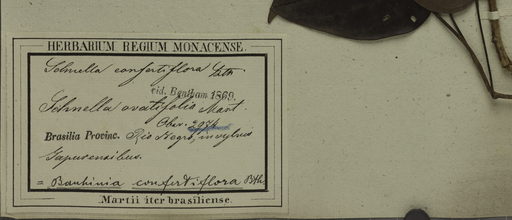 HERBARIUM REGIUM MONACENSE.
Schnella confertiflora Bth
vid. Bentham 1869.
Schnella ovatifolia Mart
Obs. 2974
Brasilia Provinc. Rio Negro, in sylvis
Japurensibus.
= Bauhinia confertiflora Bth.
Martii iter brasiliense.